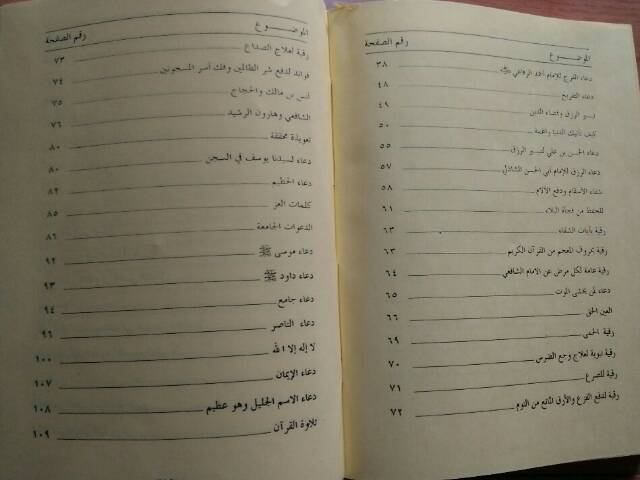 الموضــوع رقم الصفحة
دعاء الفرج للإمام أحمد الرفاعي ٣٨
دعاء التفريج ٤٨
تيسير الرزق وقضاء الدين ٤٩
كيف تأتيك الدنيا راغمة ٥٠
دعاء الحسن بن علي لتيسير الرزق ٥٥
دعاء الرزق للإمام أبي الحسن الشاذلي ٥٧
شفاء الأسقام ودفع الآلام ٥٨
للحفظ من فجأة البلاء ٦١
رقية بآيات الشفاء ٦٣
رقية بحروف المعجم من القرآن الكريم ٦٣
رقية عامة لكل مرض عن الامام الشافعي ٦٤
دعاء لمن يخشى الموت ٦٥
العين الحق ٦٦
رقية الحمى ٦٩
رقية نبوية لعلاج وجع الضرس ٧٠
رقية للصرع ٧١
رقية لدفع الفزع والأرق المانع من النوم ٧٢
الموضــوع رقم الصفحة
رقية لعلاج الصداع ٧٣
فوائد لدفع شر الظالمين وفك أسر المسجونين ٧٤
أنس بن مالك والحجاج ٧٥
الشافعي وهارون الرشيد ٧٦
تعويذة محققة ٨٠
دعاء لسيدنا يوسف في السجن ٨٠
دعاء الحطيم ٨٢
كلمات العز ٨٥
الدعوات الجامعة ٨٦
دعاء موسى ﷺ ٩٢
دعاء داود ﷺ ٩٣
دعاء جامع ٩٤
دعاء الناصر ٩٦
لا إله إلا الله ١٠٠
دعاء الإيمان ١٠٧
دعاء الاسم الجليل وهو عظيم ١٠٨
تلاوة القرآن ١٠٩